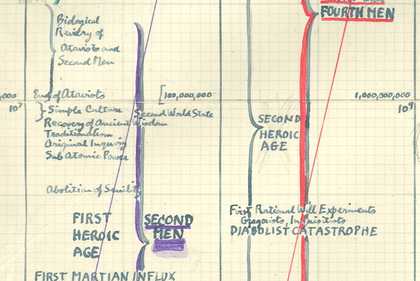 Biological
Rivalry of
Atavists and
Second Men
FOURTH MEN
,000
End of Atavists
[100,000,000
1,000,000,000
10⁷
10⁹
Simple Culture
Second World State
Recovery of Ancient Wisdom
Traditionalism
Original Inquiry
Sub Atomic Power
SECOND
HEROIC
AGE
Abolition of Senility
First Rational Will Experiments
DIABOLIST CATASTROPHE
FIRST
HEROIC
AGE
SECOND
MEN
FIRST MARTIAN INFLUX